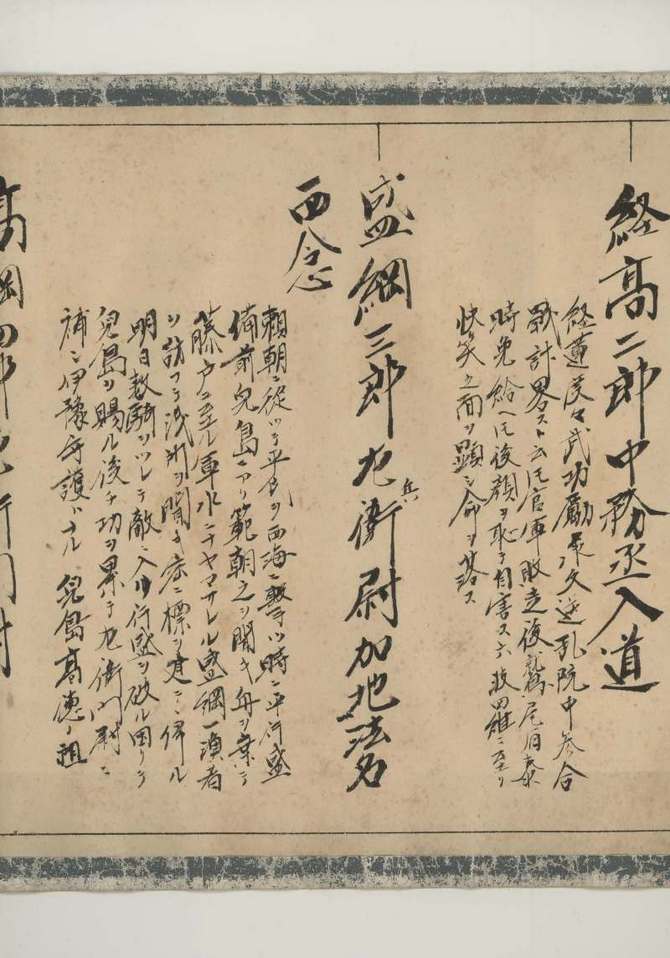 経高二郎中務丞入道
経蓮度々武功励承久逆乱院中参合
戦計畧スト云トモ官軍敗走後鷲尾泰
時免給ヘトモ後顔ヲ恥テ自害ス六波羅ニ至リ
快笑之面ヲ顕シ命ヲ落ス
盛綱三郎左兵衛尉加地法名
西念
頼朝ニ従ツテ平氏ヲ西海ニ撃ツ時ニ平行盛
備前兒島ニアリ範朝之ヲ聞キ舟ヲ棄テ
藤戸ニ至ル軍水ニテヤマサレル盛綱一漁者
ヲ訪フテ浅所ヲ聞キ赤ニ標ヲ建シ伴ル
明日数騎ヲツレテ敵ニ入リ行盛ヲ破ル因リテ
兒島ヲ賜ル後チ功ヲ累テ左衛門尉ニ
補シ伊豫守護トナル 兒島高徳ノ祖
高綱四郎左衛門尉